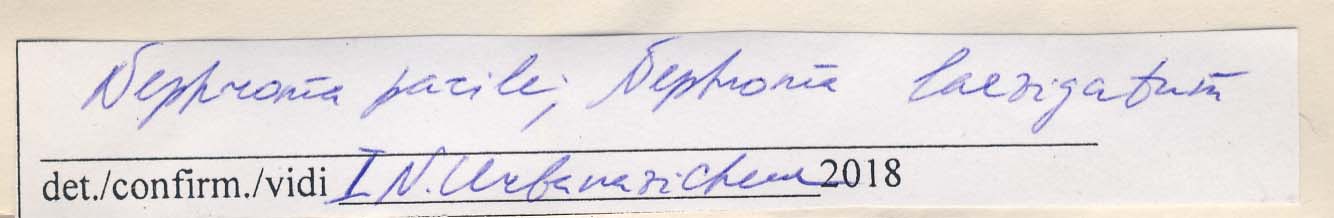 Nephroma parile; Nephroma laevigatum
det./confirm./vidi I. N. Urbanavichene 2018